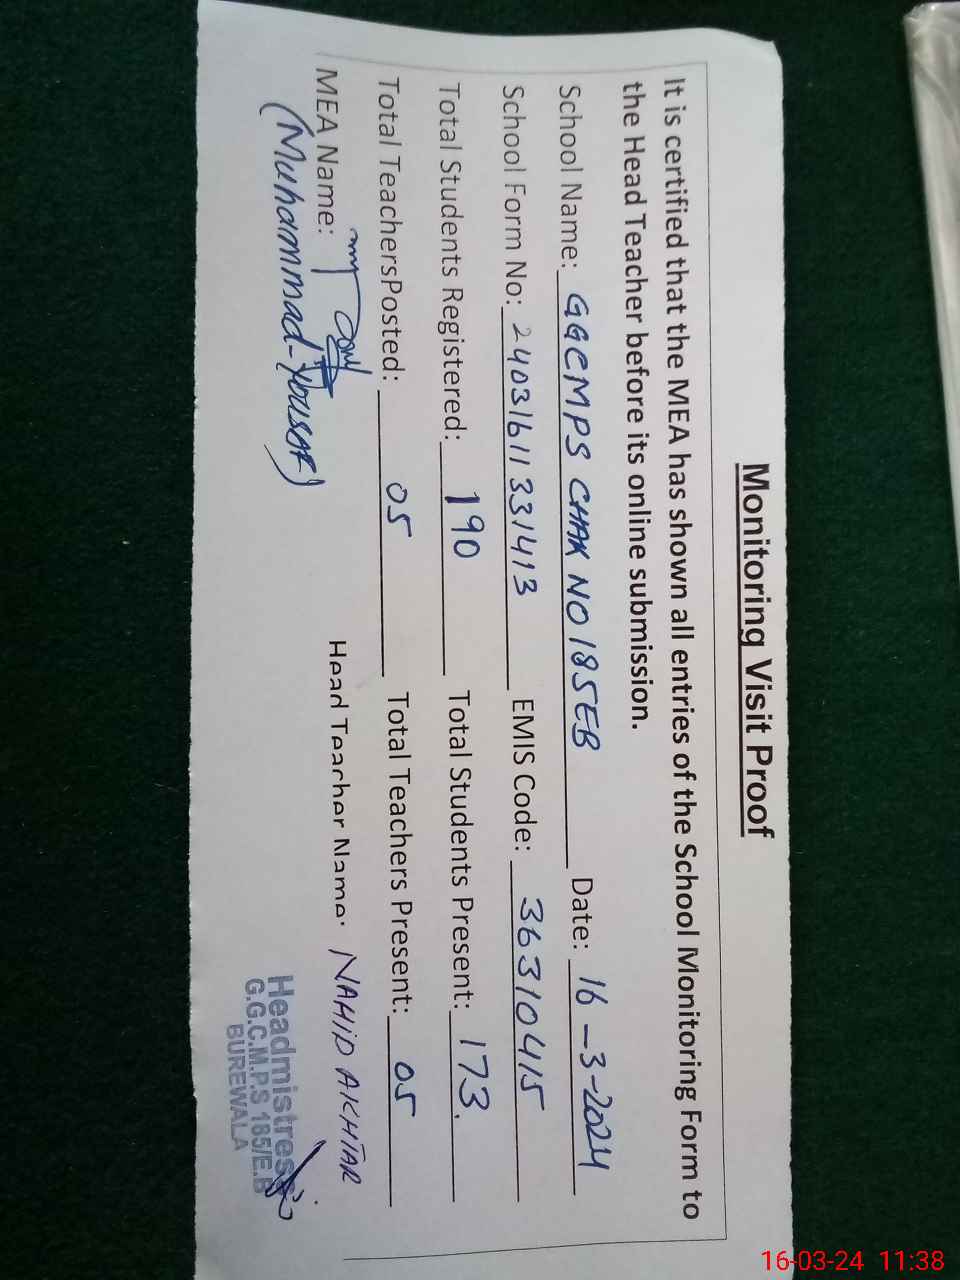 Monitoring Visit Proof
It is certified that the MEA has shown all entries of the School Monitoring Form to
the Head Teacher before its online submission.
School Name: GGCMPS CHAK NO 185EB Date: 16-3-2024
School Form No: 24031611331413 EMIS Code: 36310415
Total Students Registered: 190 Total Students Present: 173.
Total TeachersPosted: 05 Total Teachers Present: 05
MEA Name: Head Teacher Name: NAHID AKHTAR
(Muhammad-Yousaf)
Headmistress
G.G.C.M.P.S 185/E.B
BUREWALA
16-03-24 11:38